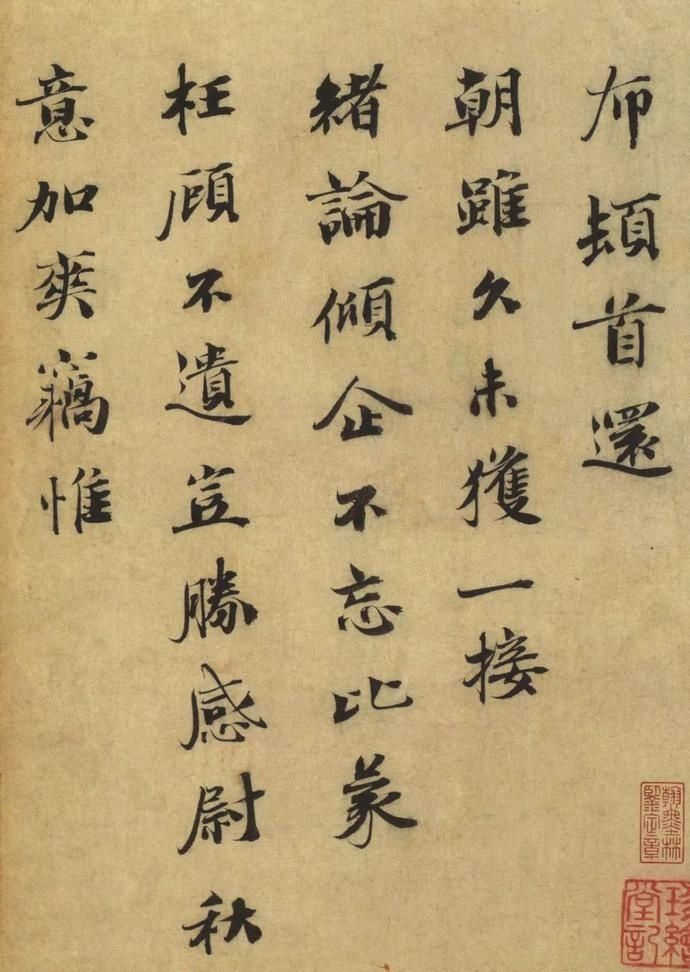 布頓首還
朝雖久未獲一接
緒論傾企不忘比蒙
枉顧不遺豈勝感尉秋
意加爽竊惟
翰墨林鑒定章
珍繪堂記